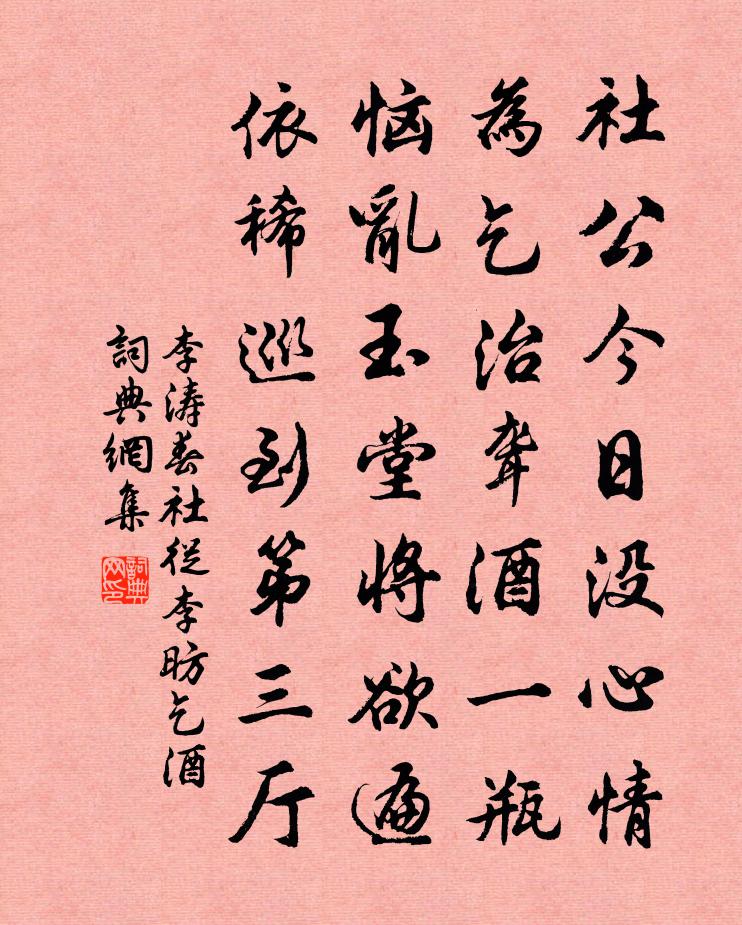 社公今日没心情
為乞治聾酒一瓶
恼亂玉堂將欲遍
依稀巡到第三厅
李涛春社從李昉乞酒
詞典網集
詞典网印